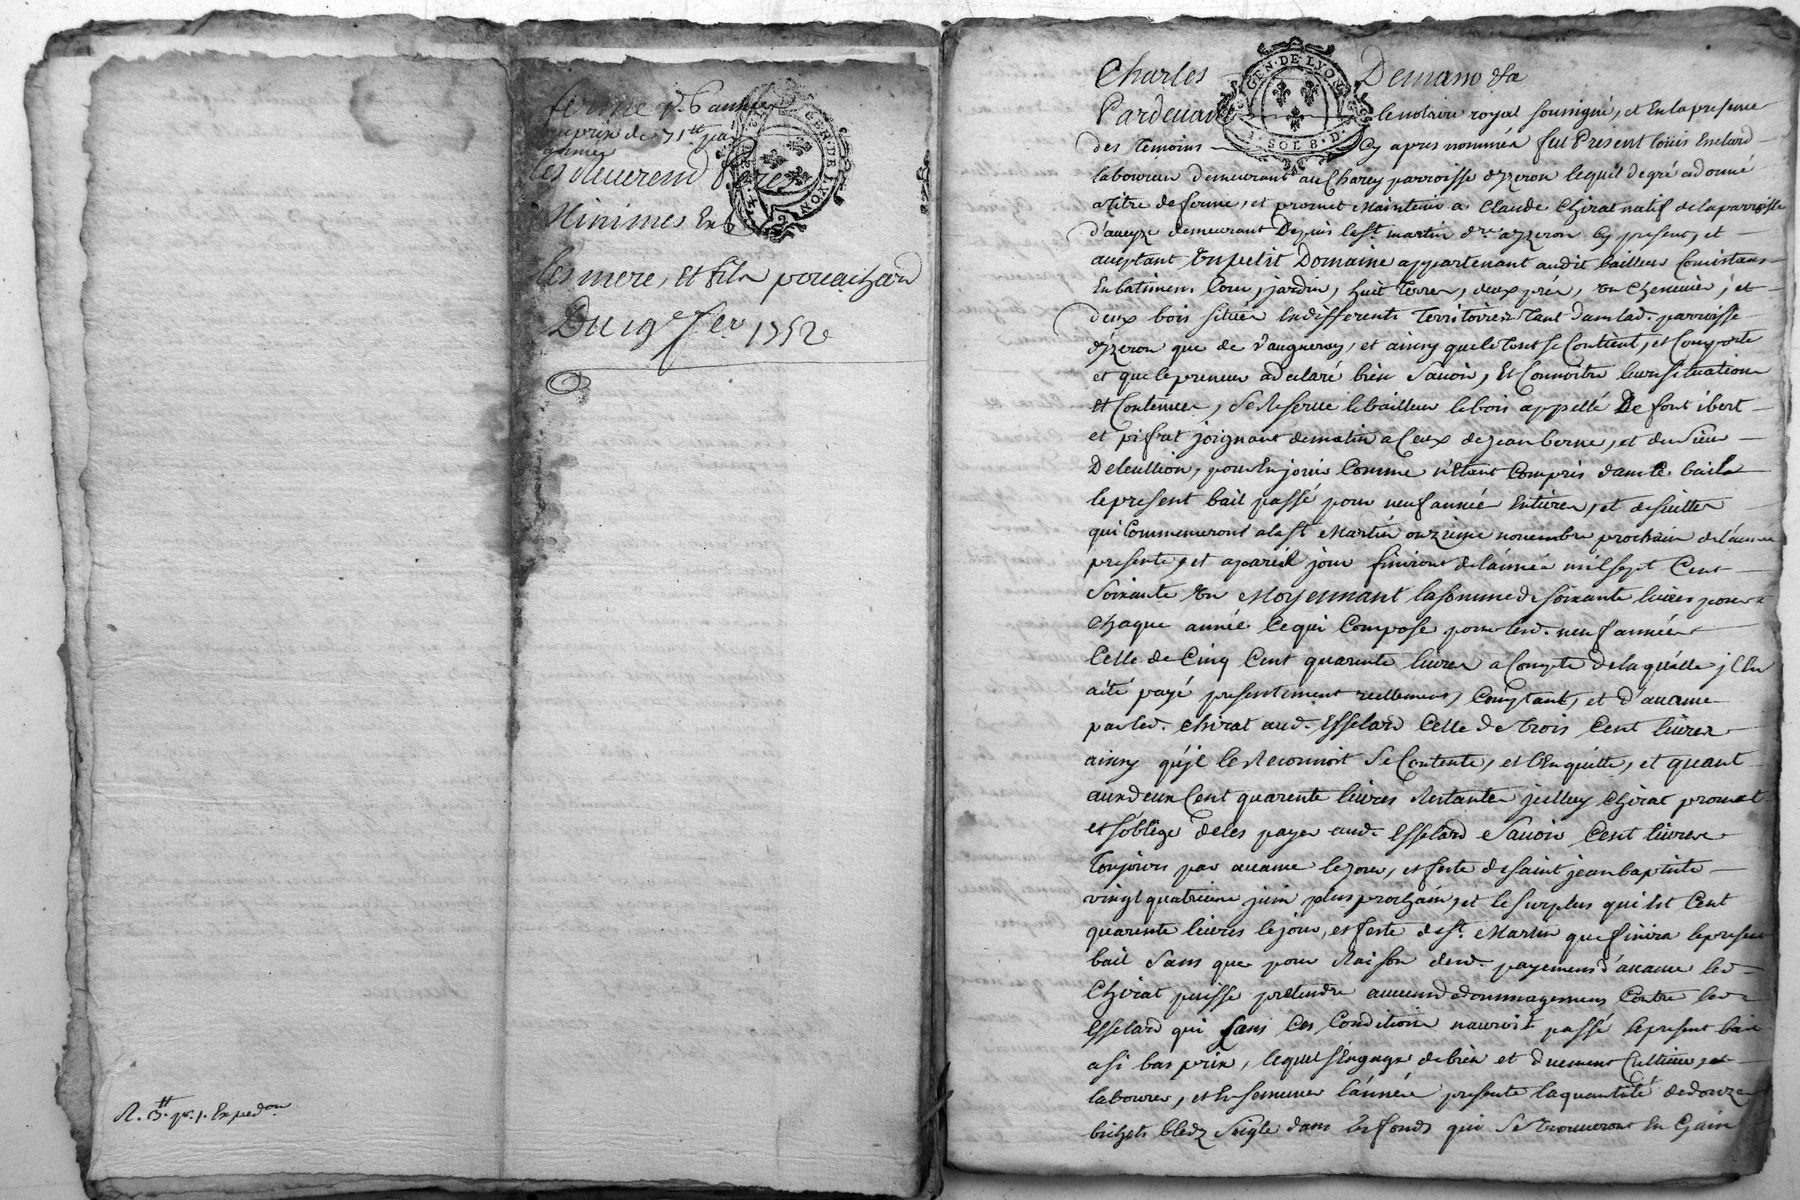 ferme p.r 6 années
au prix de 71tt par
année
Les Reverend Peres
Minimes Et
les mere, et fils pouachard
Du 19e fev.r 1752
R. 3tt pr. 1. Expedon
GEN. DE LYON
Charles Demano
GEN. DE LYON
1. SOL 8. D.
Pardevant le notaire royal soussigné, et en la presence
des temoins cy apres nommés fut Present Louis Esselard
laboureur demeurant au Charey parroisse d'yzeron lequel de gré a donné
a titre de ferme, et promet maintenir a Claude Chirat natif de la parroisse
d'aveyze demeurant Depuis la st. martin d.re a yzeron cy present, et
aceptant Un petit Domaine appartenant audit bailleur Consistans
En batimens Cour, jardin, huit terres, deux prés, un Cheneviér, et
deux bois situés En differents territoires tant dans lad. parroisse
d'yzeron que de Vaugneray, et ainsy que le tout se Contient, et Comporte
et que le preneur a declaré bien Savoir, Et Connoitre leur situation
Et Contenue, se Reserve le bailleur le bois appellé De font ibert
et pifrat joignant de matin a Ceux de jean berne, et du Sieur
Deleullion, pour En jouir Comme n'Etant Compris dans le bail
le present bail passé pour neuf année Entieres, et de suitte
qui Commenceront a la st Martin onzieme novembre prochain de l'année
presente, et a pareil jour finiront de l'année mil sept Cent
Soixante Un Moyennant la somme de soixante livres pour
Chaque année Ce qui Compose pour lesd. neuf années
Celle de Cinq Cent quarente livres a Compte de laquelle il En
a été payé presentement reellement, Comptant, et d'avance
par led. Chirat aud. Esselard Celle de trois Cent livres
ainsy qu'jl le Reconnoit se Contente, et l'En quitte, et quant
aux deux Cent quarente livres Restantes jcelluy Chirat promet
et s'oblige de les payer aud. Esselard Savoir Cent livres
toujours par avance le jour, et feste de saint jean baptiste
vingt quatrieme juin plus prochain, et le surplus qui Est Cent
quarente livres le jour, et feste de st. Martin que finira le present
bail Sans que pour Raison desd. payemens d'avance led.
Chirat puisse pretendre aucuns dedommagemens Contre led.
Esselard qui sans Ces Conditions n'auroit passé le present bail
a si bas prix, lequel s'Engage de bien et duement Cultiver, et
labourer, et Ensemencer l'année presente la quantité de douze
bichets bled Seigle dans les fonds qui se trouveront En